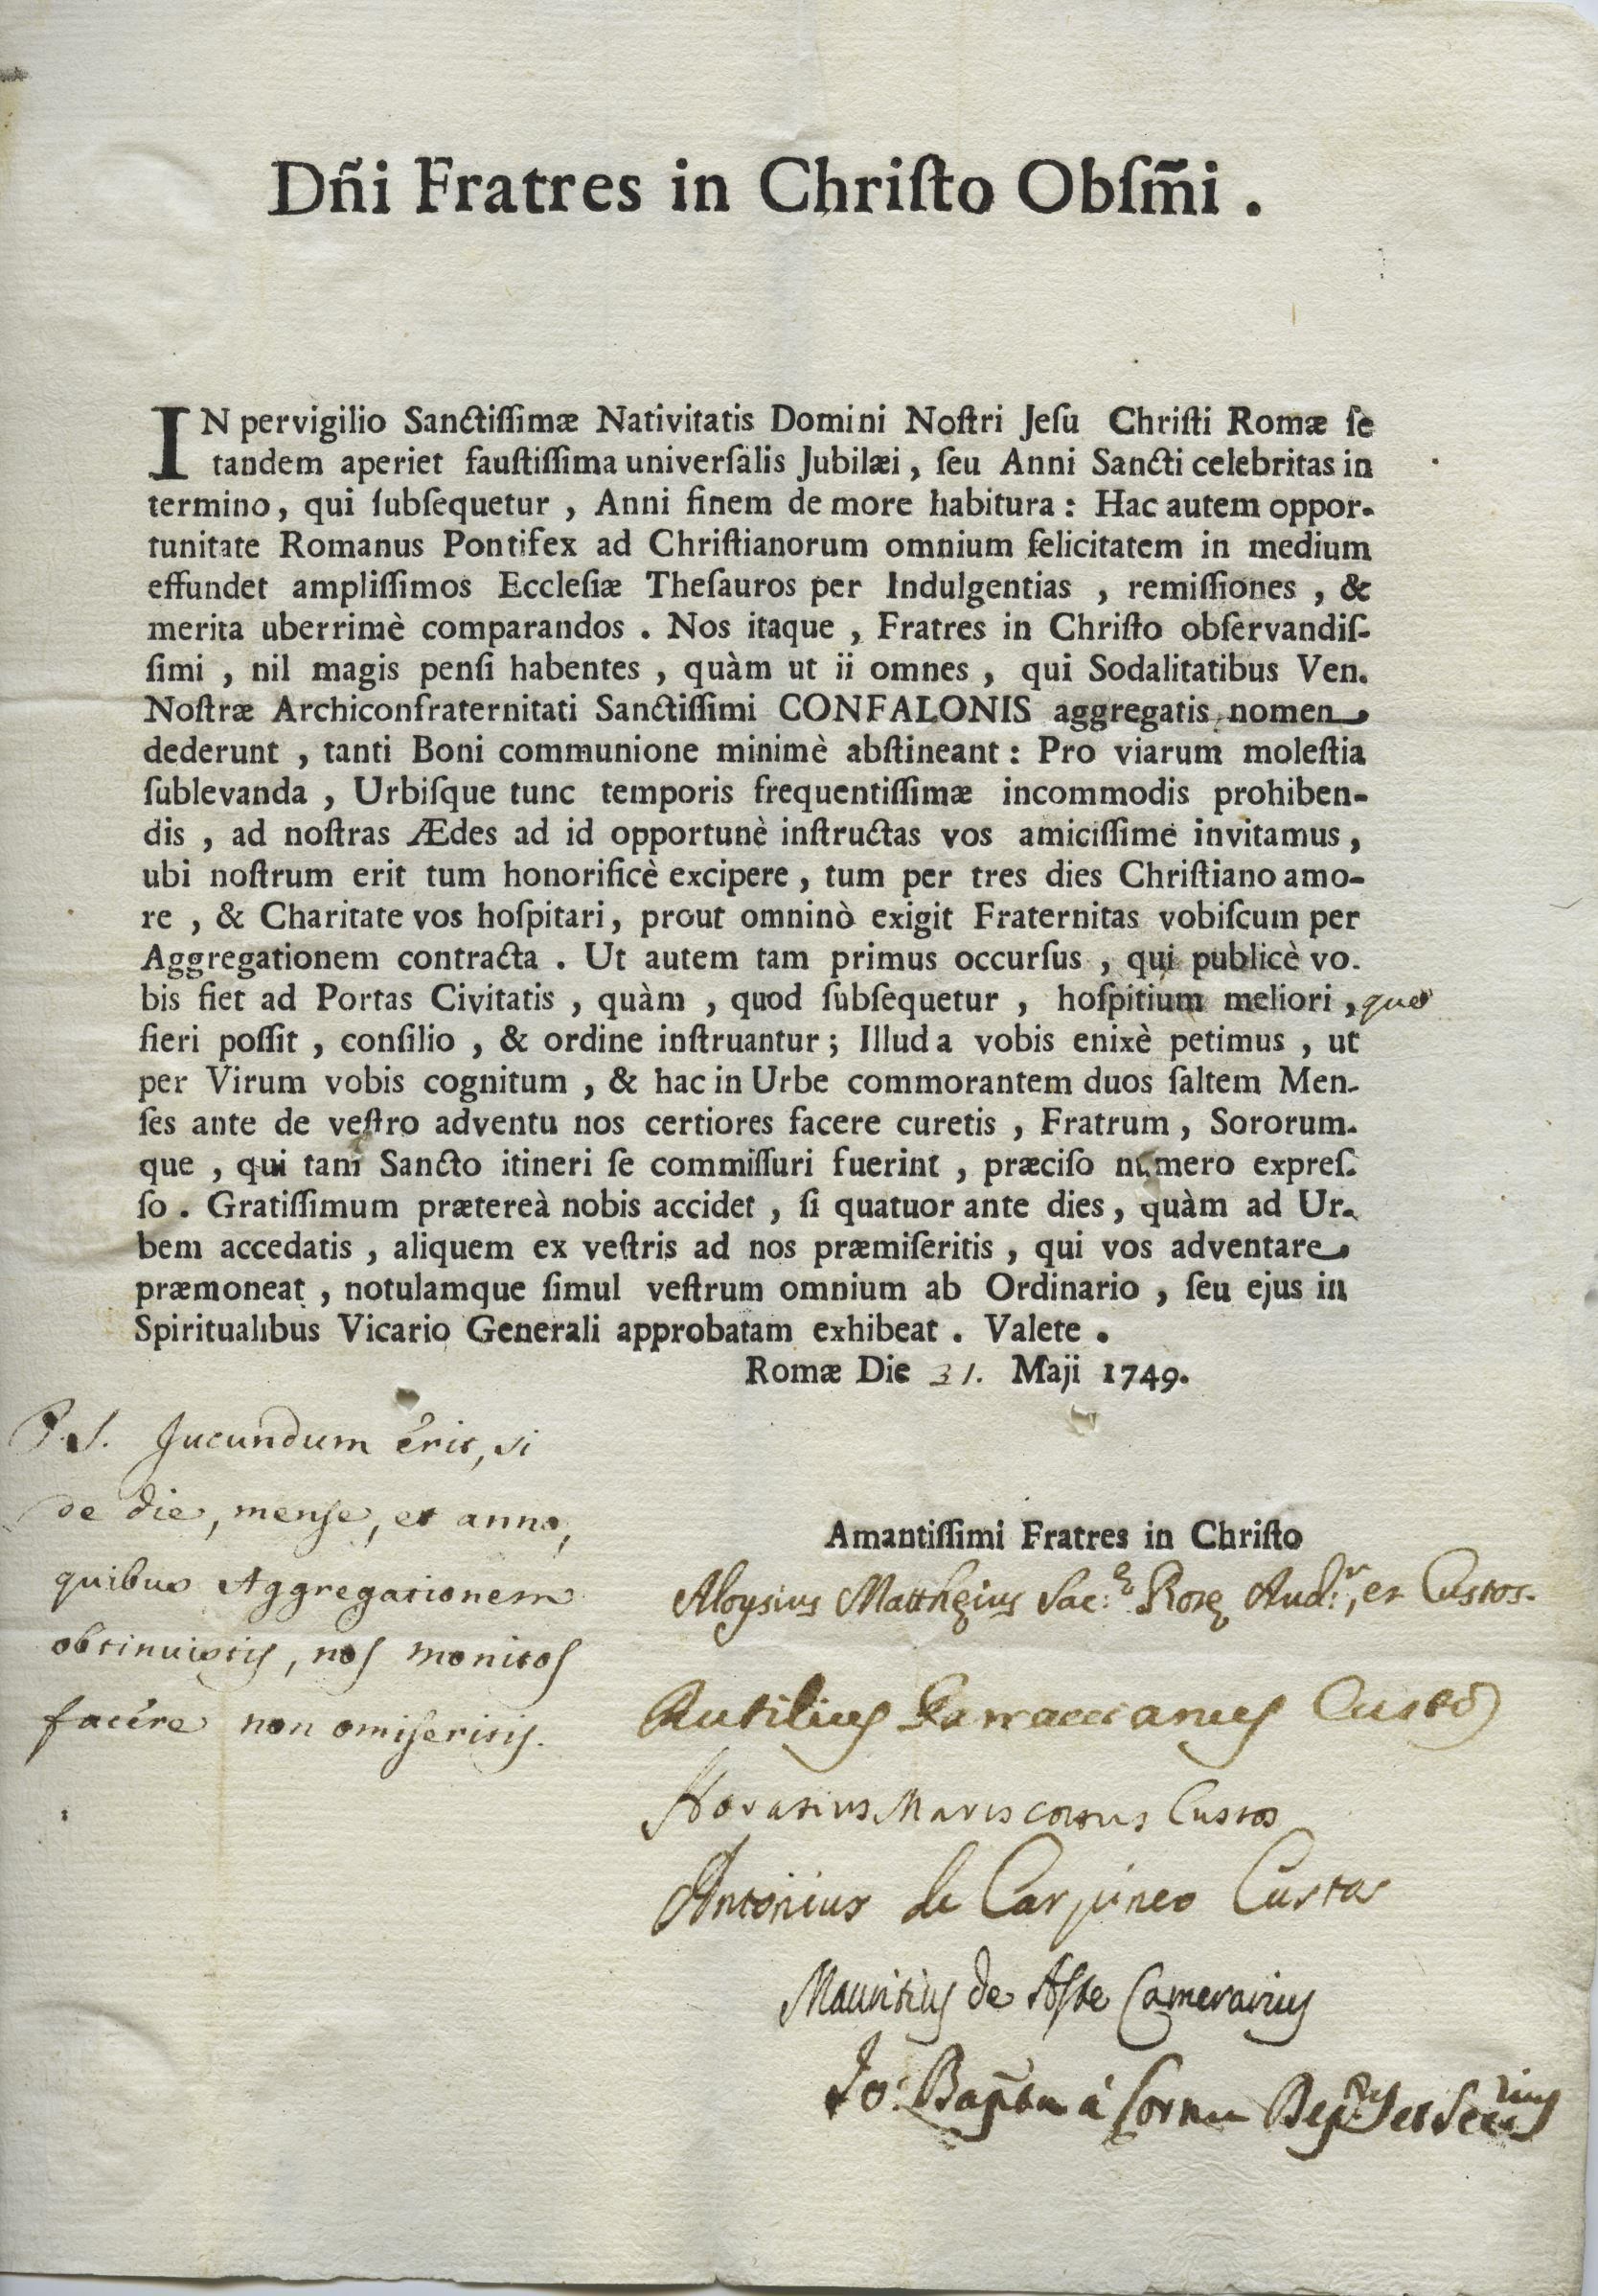 Dñi Fratres in Chriſto Obſm̃i .
IN pervigilio Sanctiſſimæ Nativitatis Domini Noſtri Jeſu Chriſti Romæ ſe
tandem aperiet fauſtiſſima univerſalis Jubilæi , ſeu Anni Sancti celebritas in
termino, qui ſubſequetur , Anni finem de more habitura : Hac autem oppor-
tunitate Romanus Pontifex ad Chriſtianorum omnium felicitatem in medium
effundet ampliſſimos Eccleſiæ Theſauros per Indulgentias , remiſſiones , &
merita uberrimè comparandos . Nos itaque , Fratres in Chriſto obſervandiſ-
ſimi , nil magis penſi habentes , quàm ut ii omnes , qui Sodalitatibus Ven.
Noſtræ Archiconfraternitati Sanctiſſimi CONFALONIS aggregatis nomen
dederunt , tanti Boni communione minimè abſtineant : Pro viarum moleſtia
ſublevanda , Urbiſque tunc temporis frequentiſſimæ incommodis prohiben-
dis , ad noſtras Ædes ad id opportunè inſtructas vos amiciſſimè invitamus ,
ubi noſtrum erit tum honorificè excipere , tum per tres dies Chriſtiano amo-
re , & Charitate vos hoſpitari, prout omninò exigit Fraternitas vobiſcum per
Aggregationem contracta . Ut autem tam primus occurſus , qui publicè vo-
bis fiet ad Portas Civitatis , quàm , quod ſubſequetur , hoſpitium meliori , quo
fieri poſſit , conſilio , & ordine inſtruantur ; Illud a vobis enixè petimus , ut
per Virum vobis cognitum , & hac in Urbe commorantem duos ſaltem Men-
ſes ante de veſtro adventu nos certiores facere curetis , Fratrum , Sororum-
que , qui tam Sancto itineri ſe commiſſuri fuerint , præciſo numero expreſ-
ſo . Gratiſſimum prætereà nobis accidet , ſi quatuor ante dies , quàm ad Ur-
bem accedatis , aliquem ex veſtris ad nos præmiſeritis , qui vos adventare
præmoneat , notulamque ſimul veſtrum omnium ab Ordinario , ſeu ejus in
Spiritualibus Vicario Generali approbatam exhibeat . Valete .
Romæ Die 31. Maji 1749.
P.S. Jucundum erit, si
de die, mense, et anno,
quibus Aggregationem
obtinuistis, nos monitos
facere non omiseritis.
Amantiſſimi Fratres in Chriſto
Aloysius Mattheius Sac: Rotę Aud:r, et Custos.
Rutilius Custos
Horatius Custos
Antonius de Carpineo Custos
Mauritius de Aste Camerarius
Jo: Bapta à Cornu et